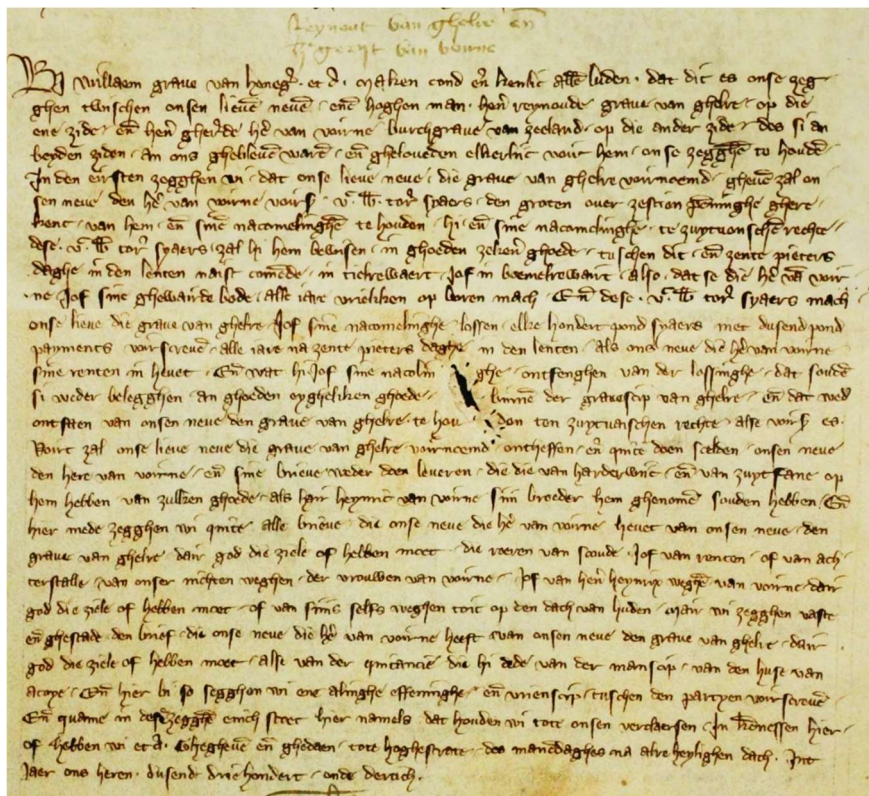 Reynout van ghelre en̄
h̄ gerijt van vorne
Wi willaem grave van heneg̃ . et c̃ . Maken cond en̄ kenlic allē luden . dat dit es onse zeg
ghen twischen onsen lievē nevē . enē hoghen man . hēr reynoude grave van ghelre . op die
ene zide . en̄ hēr gherẽde hẽ van voirne . burchgrave van zeeland . op die ander zide . des si an
beyden ziden . an ons ghebleuē warē . en̄ gheloueden elkerlijc voir hem . onse zegghē te houdē .
In den eirsten zegghen wi . dat onse lieve neve . die grave van ghelre voirnoemd . ghevē zal on
sen neve den hẽ van voirne . voirs̃ . v . lb tor̃ sjaers . den groten over zestien penninghe ghere
kent . van hem . en̄ sinē nacomelinghē te houden . hi . en̄ sine nacomelinghe . te zuytvenschē rechte .
dese . v . lb tor̃ sjaers . zal hi hem bewisen . in ghoeden zekerē ghoede . tuschen dit . en̄ zente pieters
daghe in den lenten naist comēde . in tielrewaert . Jof in boemelrewairt . also . dat se die hẽ vā voir
ne Jof sine ghewairde bode . alle iare vrieliken op boren mach . En̄ dese . v . lb tor̃ sjaers mach
onse lieve die grave van ghelre . Jof sine nacomelinghe lossen . elke hondert pond sjaers met dusend pond
payments voirscrevē . alle iare na zente pieters daghe in den lenten . als onse neve die hẽ van voirne
sine renten in hevet . En̄ wat hi . Jof sine nacolin ghe . ontfenghen van der lossinghe . dat soudē
si weder belegghen . an ghoeden eygheliken ghoede . binnē der gravescip van ghelre . en̄ dat wed
ontfaen van onsen neve den grave van ghelre . te hou den ten zuytvaischen rechte . alse voirs̃ es .
Voirt zal onse lieve neve die grave van ghelre voirnoemd ontheffen . en̄ quite doen scelden . onsen neve
den here van voirne . en̄ sine brieve weder doen leveren . die die van harderwijc . en̄ van zuytfane op
hem hebben van zulken ghoede . als hair heynric van voirne sijn broeder hem ghenomē souden hebben . En̄
hier mede zegghen wi quite alle brieve . die onse neve die hẽ van voirne hevet van onsen neve . den
grave van ghelre dair god die ziele of hebben moet . die roeren van scoude . Jof van renten . of van ach
terstalle . van onser nichten weghen . der vrouwen van voirne . Jof van hēr heynrix weghē van voirne . dair
god die ziele of hebben moet . of van sijns selfs weghen toit op den dach van huden . Mair wi zegghen vaste
en̄ ghestade den brief . die onse neve die hẽ van voirne heeft van onsen neve den grave van ghelre . dair
god die ziele of hebben moet . alse van der quitancie die hi dede . van der manscip . van den huse van
acoye . En̄ hier bi so segghen wi ene alinghe effeninghe . en̄ vrienscip . tuschen den partyen voirscrevē .
En̄ quame in desē zegghē enich stoet hier namels dat houden wi tote onsen verclaersen . In kēnessen hier
of hebben wi et c̃ . Ghegheuē en̄ ghedaen . tote hoghestrate . des manēdaghes na alre heylighen dach . Int
Jaer ons heren . dusent driehondert . ende dertich .